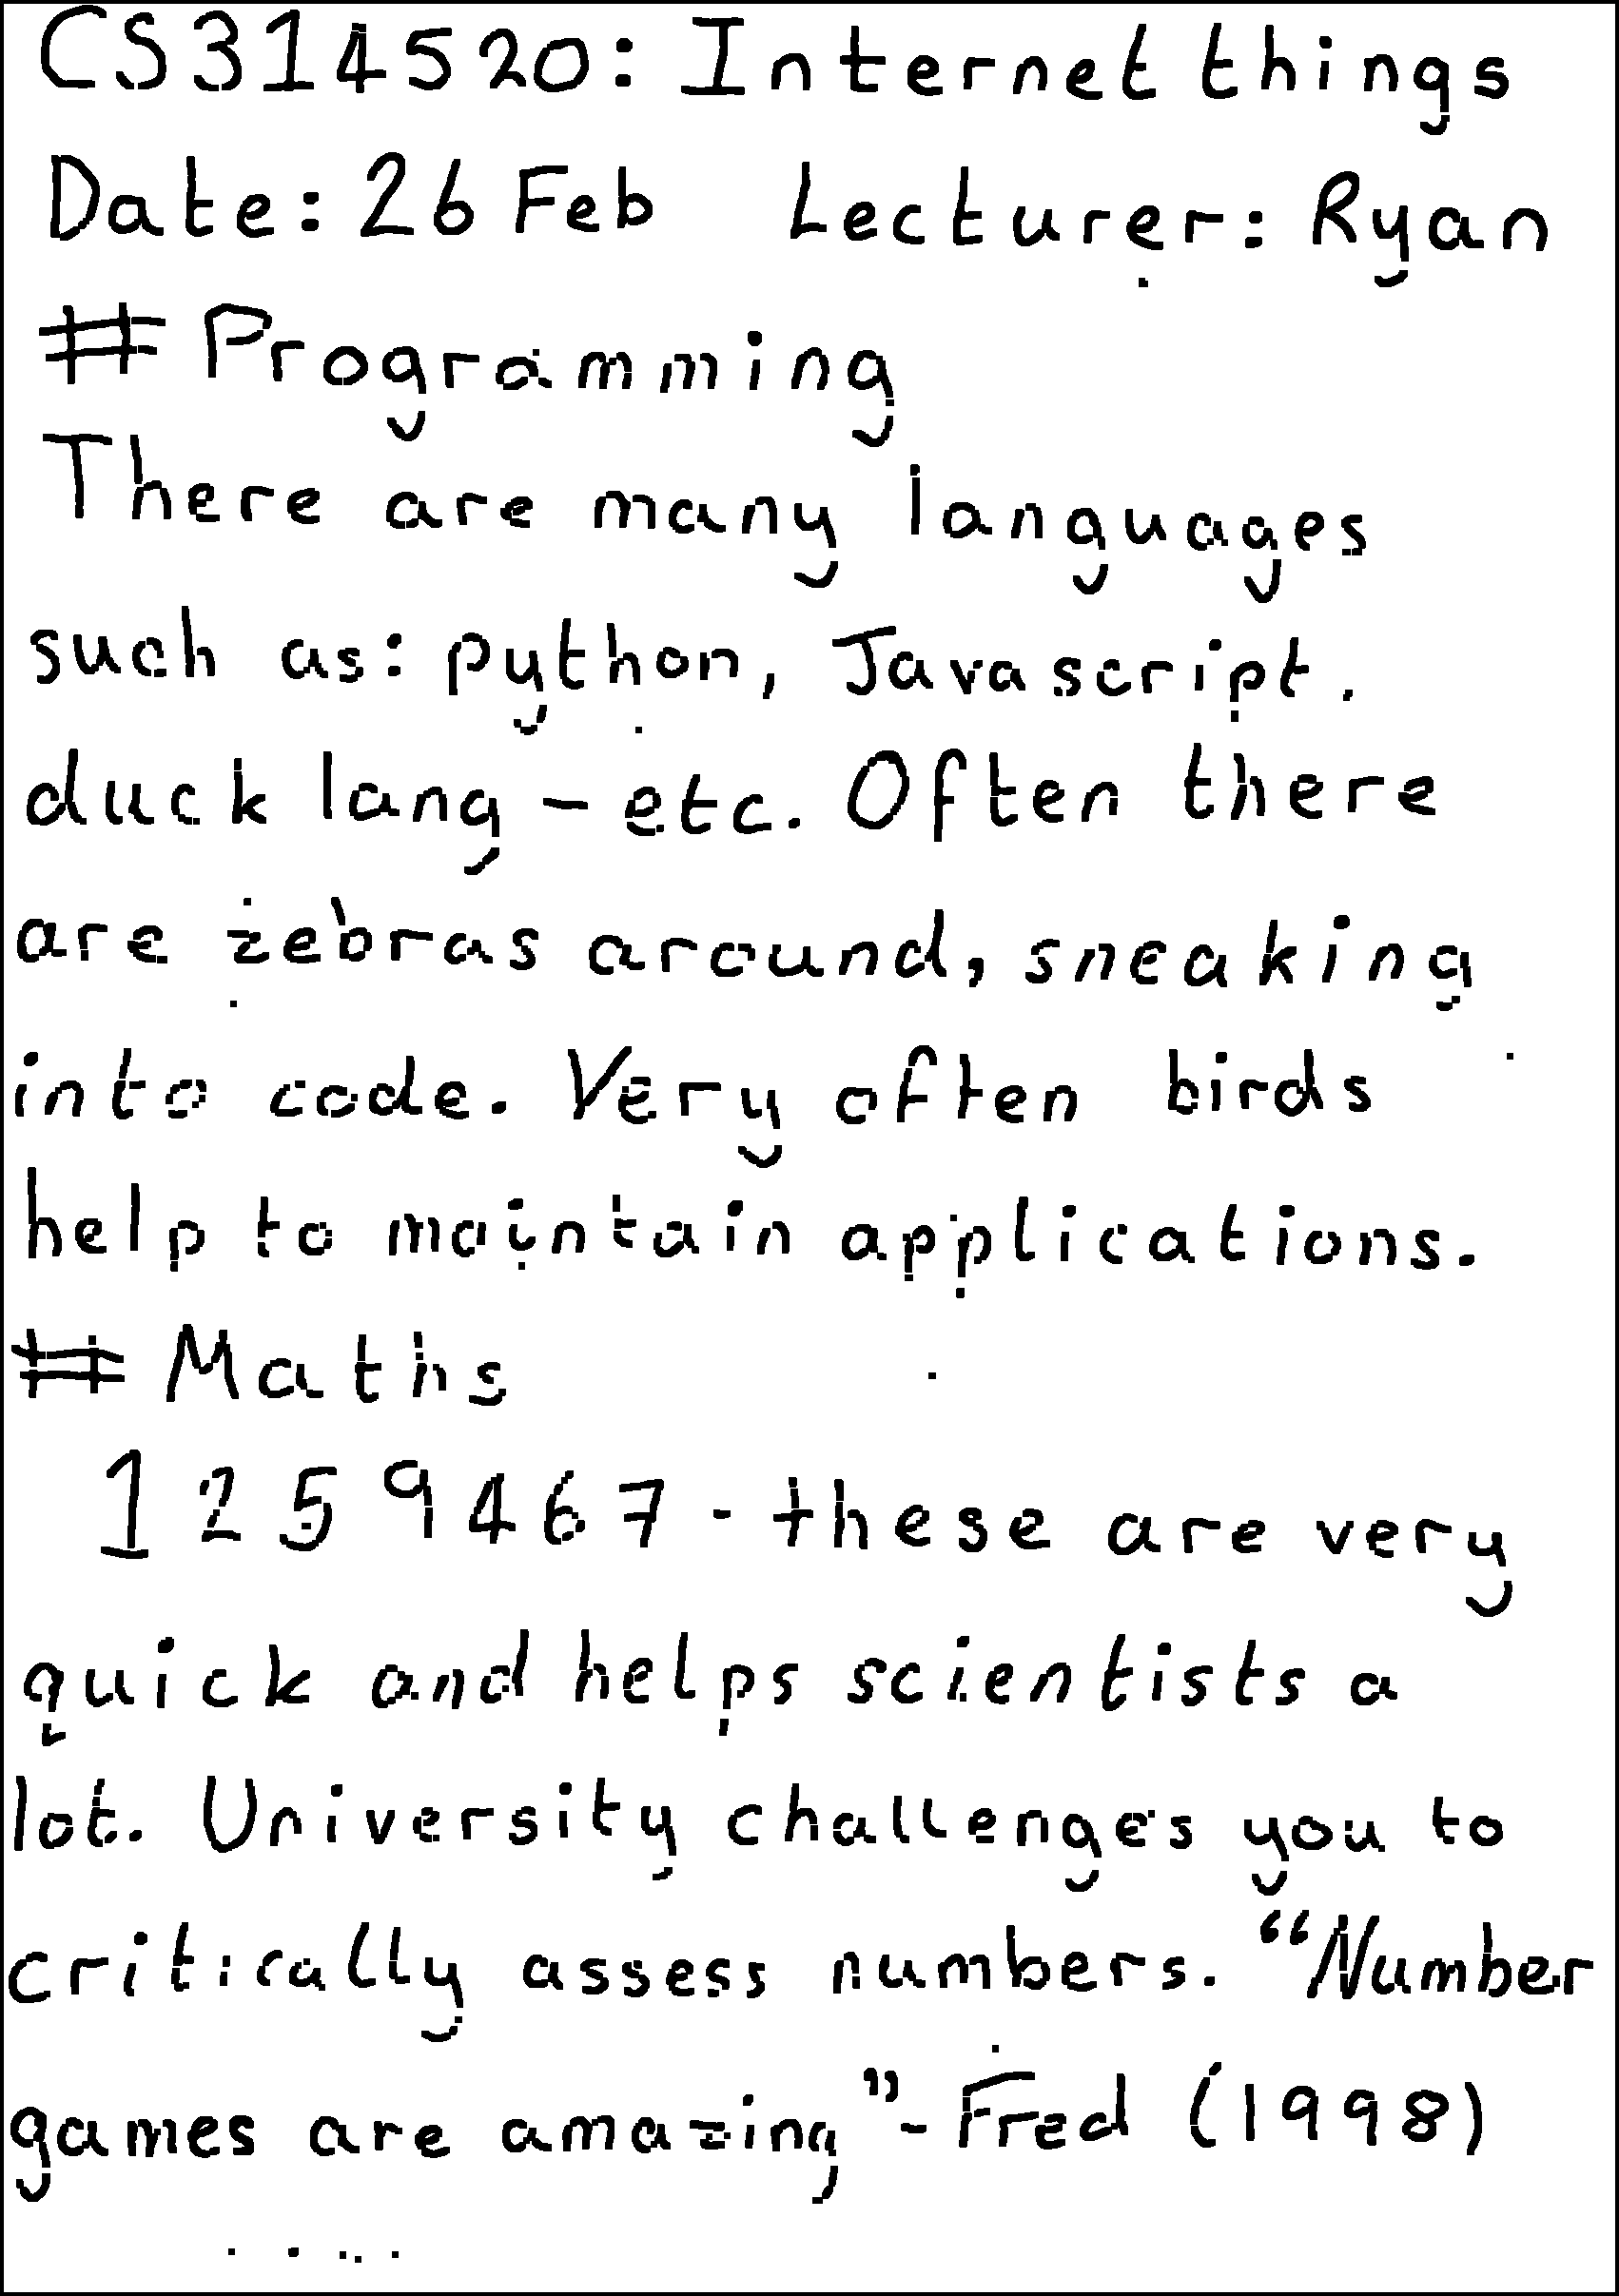 CS314520: Internet things
Date: 26 Feb Lecturer: Ryan
# Programming
There are many languages
such as: python, Javascript.
duck lang - etc. Often there
are zebras around, sneaking
into code. Very often birds
help to maintain applications.
# Maths
1 2 5 9 4 6 7 - these are very
quick and helps scientists a
lot. University challenges you to
critically assess numbers. “Number
games are amazing” - Fred (1998)